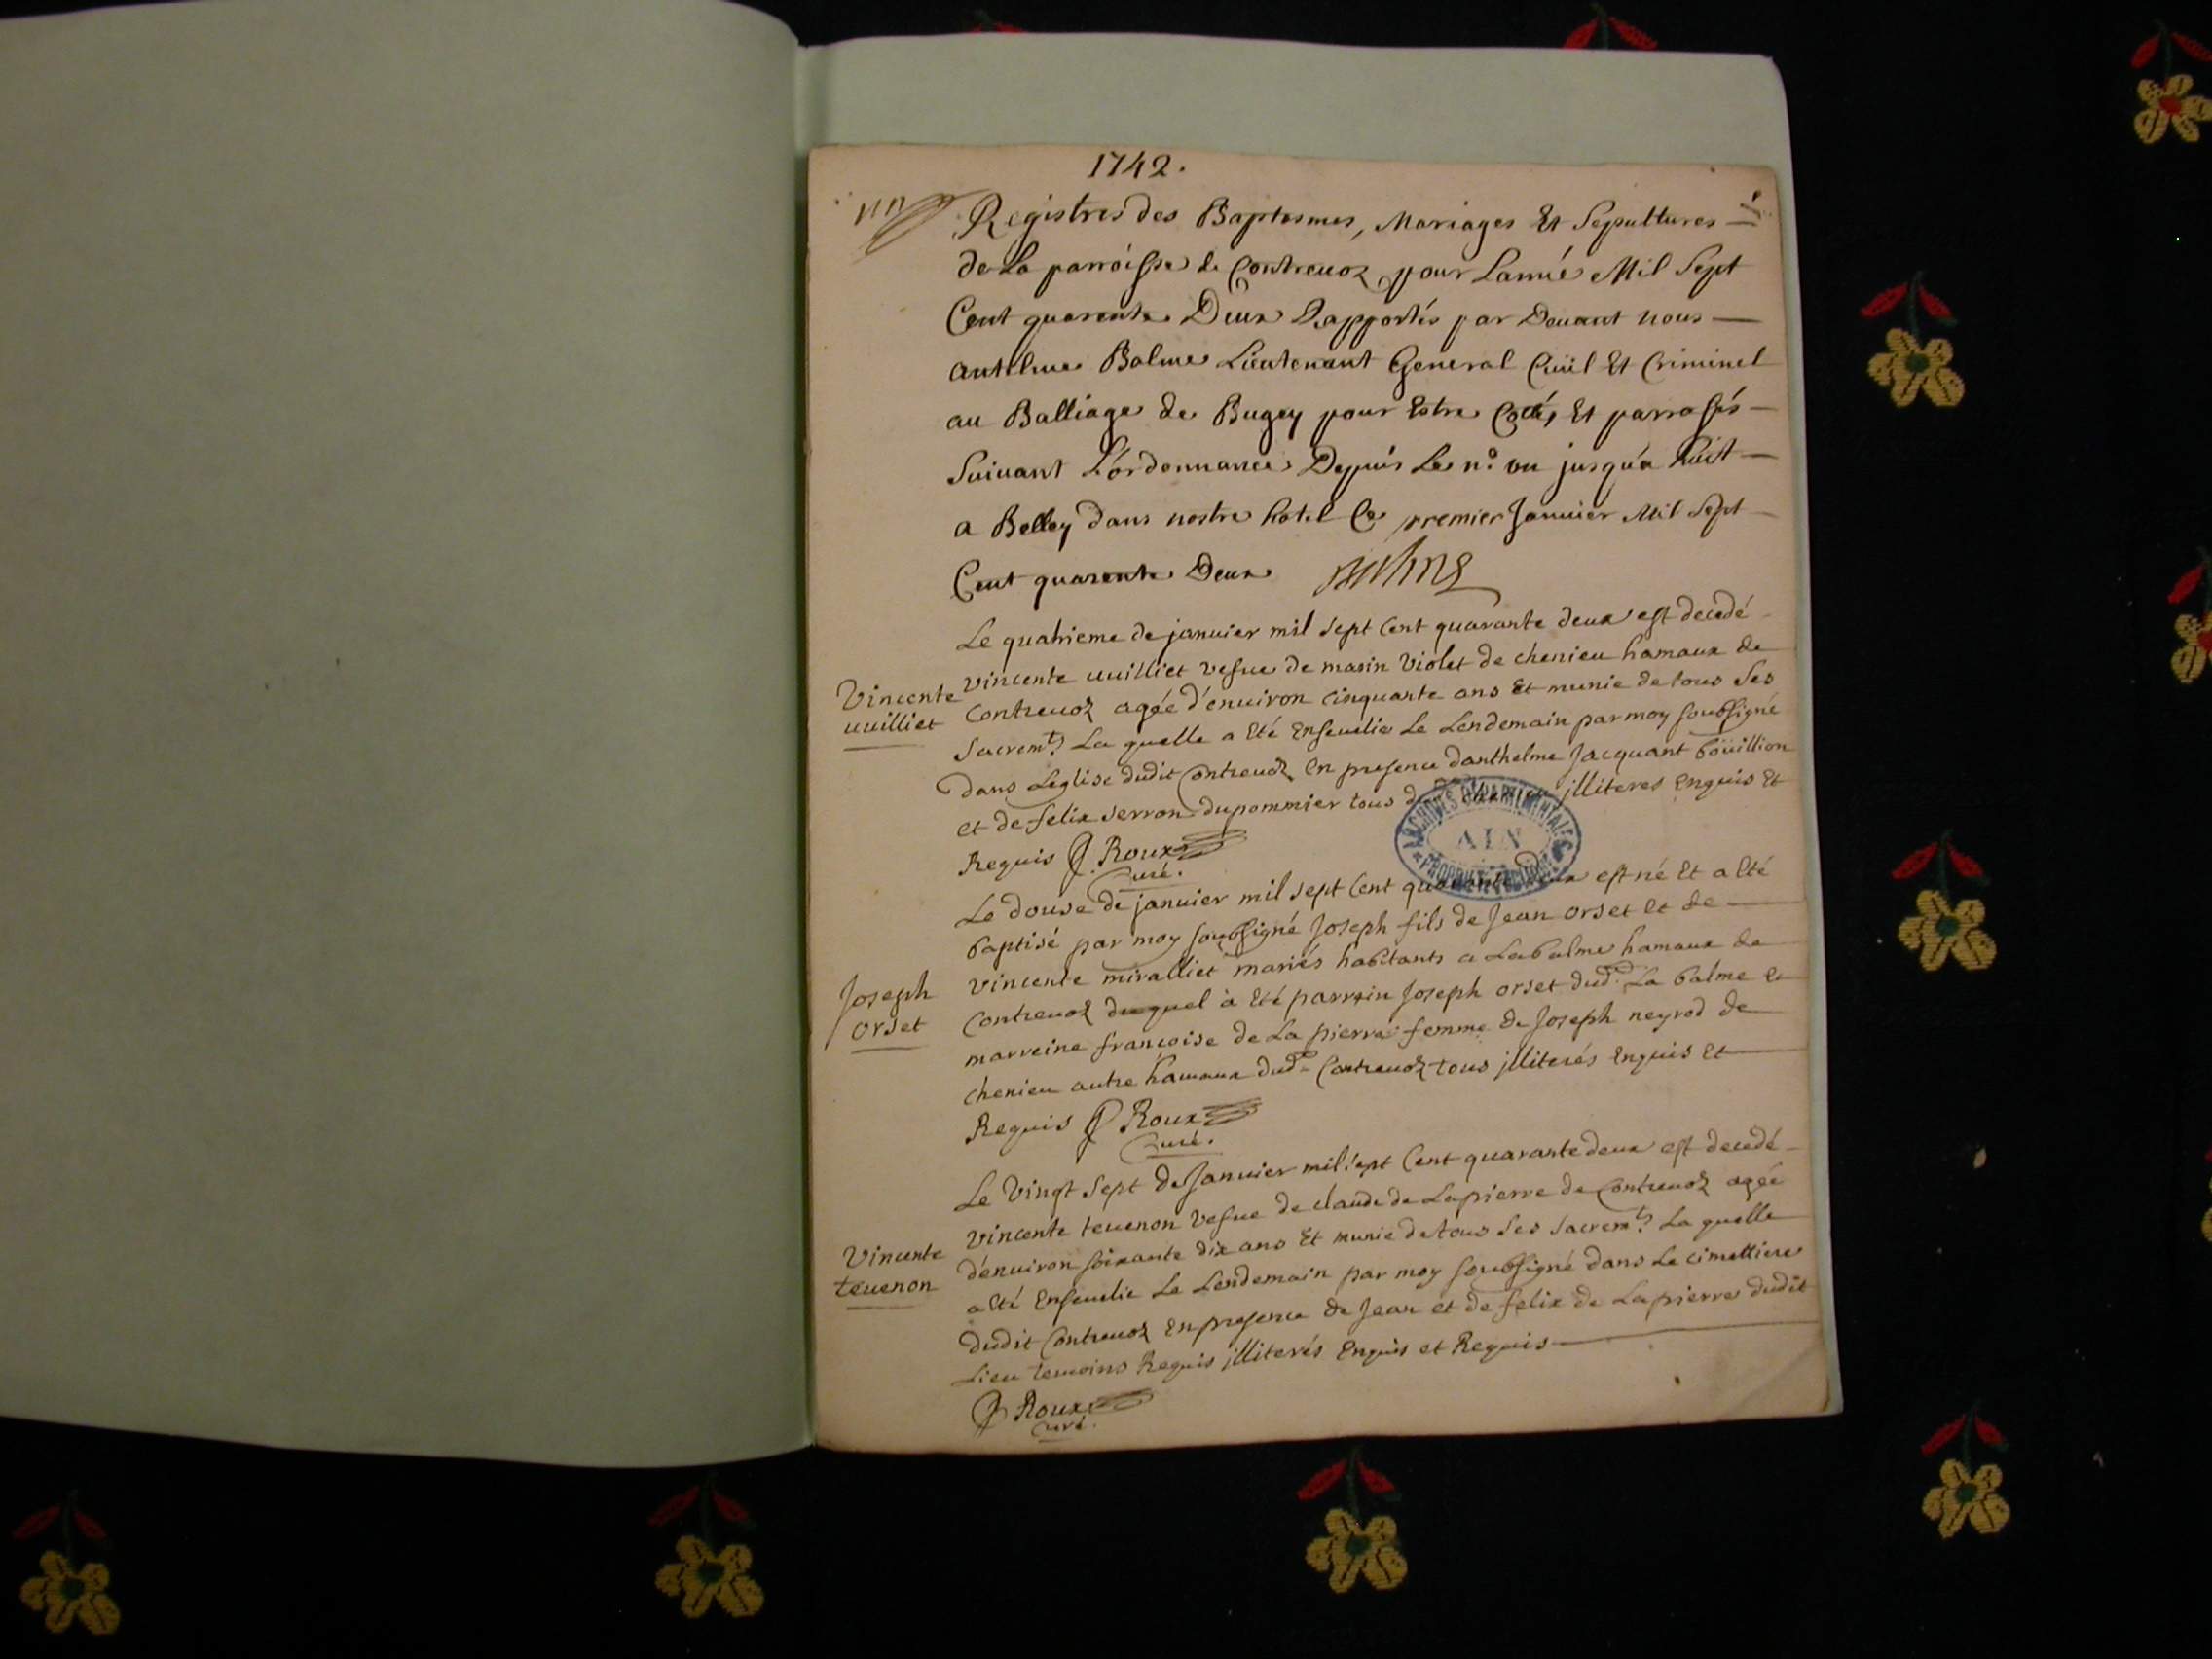 1742.
un
Registres des Baptesmes, Mariages Et Sepultures
de La parroisse de Contreuoz pour Lannée Mil Sept
Cent quarente Deux Rapportés par Deuant nous
antelme Balme Lieutenant General Ciuil Et Criminel
au Balliage de Bugey pour Estre Cottés Et parrafés
Suiuant L'ordonnance Depuis Le n° un jusqu'a huit
a Belley dans nostre hotel Ce premier Januier Mil Sept
Cent quarente Deux Balme
Le quatrieme de januier mil sept Cent quarante deux est decedé
Vincente uuilliet
vincente uuilliet vefue de marin Violet de chenieu hamaux de
Contreuoz agée d'enuiron cinquante ans Et munie de tous Ses
Sacremts La quelle a Eté Enseuelie Le Lendemain par moy soubsigné
dans Leglise dudit Contreuoz En presence danthelme Jacquant boüillion
et de felix serron dupommier tous illiteres Enquis Et
Requis Roux
Curé.
ARCHIVES DÉPARTEMENTALES
AIN
PROPRIÉTÉ PUBLIQUE
Le douse de januier mil sept Cent quarante deux est né Et a Eté
baptisé par moy soubsigné Joseph fils de Jean orset Et de
Joseph orset
vincente miralliet mariés habitants a Labalme hamaux de
Contreuoz duquel à Eté parrein Joseph orset dud. La balme Et
marreine françoise de La pierre femme de Joseph neyrod de
chenieu autre hamaux dud. Contreuoz tous illiterés Enquis Et
Requis Roux
Curé.
Le Vingt Sept de Januier mil sept Cent quarante deux est decedé
Vincente teuenon
vincente teuenon vefue de claude de Lapierre de Contreuoz agée
d'enuiron soixante dix ans Et munie de tous Ses Sacremts La quelle
a Eté Enseuelie Le Lendemain par moy soubsigné dans Le cimettiere
dudit Contreuoz En presence de Jean et de felix de Lapierre dudit
Lieu temoins Requis illiterés Enquis et Requis
Roux
Curé.